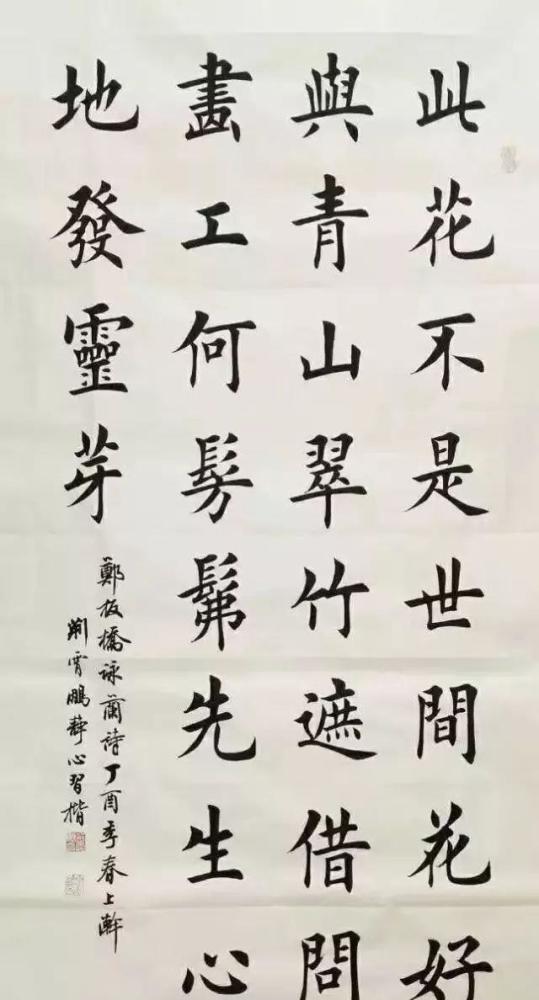 此花不是世間花好
與青山翠竹遮借問
畫工何髣髴先生心
地發靈芽
鄭板橋詠蘭詩丁酉季春上澣
霄鵬靜心習楷